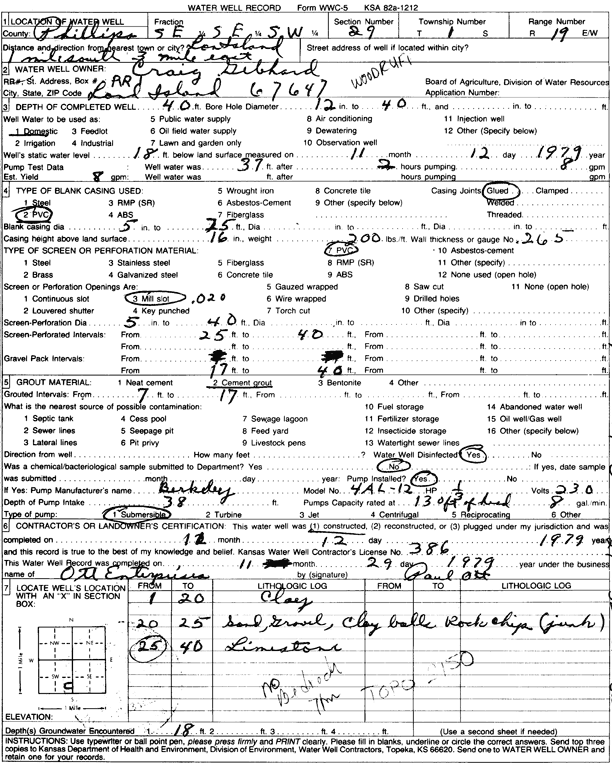 WATER WELL RECORD Form WWC-5 KSA 82a-1212
1 LOCATION OF WATER WELL Fraction Section Number Township Number Range Number
County: Phillips SE ¼ SE ¼ SW ¼ 29 T 1 S R 19 E/W
Distance and direction from nearest town or city? Street address of well if located within city?
1 mile south
2 WATER WELL OWNER: Craig Gebhard WOODRUFF
RR#, St. Address, Box # RR Board of Agriculture, Division of Water Resources
City, State, ZIP Code Long Island 67647 Application Number:
3 DEPTH OF COMPLETED WELL 40 ft. Bore Hole Diameter 12 in. to 40 ft., and in. to ft.
Well Water to be used as: 5 Public water supply 8 Air conditioning 11 Injection well
1 Domestic 3 Feedlot 6 Oil field water supply 9 Dewatering 12 Other (Specify below)
2 Irrigation 4 Industrial 7 Lawn and garden only 10 Observation well
Well's static water level 18 ft. below land surface measured on 11 month 12 day 1979 year
Pump Test Data : Well water was 37 ft. after 2 hours pumping 8 gpm
Est. Yield 8 gpm: Well water was ft. after hours pumping gpm
4 TYPE OF BLANK CASING USED: 5 Wrought iron 8 Concrete tile Casing Joints: Glued Clamped
1 Steel 3 RMP (SR) 6 Asbestos-Cement 9 Other (specify below) Welded
2 PVC 4 ABS 7 Fiberglass Threaded
Blank casing dia 5 in. to 25 ft., Dia in. to ft., Dia in. to ft.
Casing height above land surface 16 in., weight 200 lbs/ft. Wall thickness or gauge No. .265
TYPE OF SCREEN OR PERFORATION MATERIAL: 7 PVC 10 Asbestos-cement
1 Steel 3 Stainless steel 5 Fiberglass 8 RMP (SR) 11 Other (specify)
2 Brass 4 Galvanized steel 6 Concrete tile 9 ABS 12 None used (open hole)
Screen or Perforation Openings Are: 5 Gauzed wrapped 8 Saw cut 11 None (open hole)
1 Continuous slot 3 Mill slot .020 6 Wire wrapped 9 Drilled holes
2 Louvered shutter 4 Key punched 7 Torch cut 10 Other (specify)
Screen-Perforation Dia 5 in. to 40 ft., Dia in. to ft., Dia in. to ft.
Screen-Perforated Intervals: From 25 ft. to 40 ft., From ft. to ft.
From ft. to ft., From ft. to ft.
Gravel Pack Intervals: From ft. to ft., From ft. to ft.
From 17 ft. to 40 ft., From ft. to ft.
5 GROUT MATERIAL: 1 Neat cement 2 Cement grout 3 Bentonite 4 Other
Grouted Intervals: From 7 ft. to 17 ft., From ft. to ft., From ft. to ft.
What is the nearest source of possible contamination: 10 Fuel storage 14 Abandoned water well
1 Septic tank 4 Cess pool 7 Sewage lagoon 11 Fertilizer storage 15 Oil well/Gas well
2 Sewer lines 5 Seepage pit 8 Feed yard 12 Insecticide storage 16 Other (specify below)
3 Lateral lines 6 Pit privy 9 Livestock pens 13 Watertight sewer lines
Direction from well How many feet ? Water Well Disinfected? Yes No
Was a chemical/bacteriological sample submitted to Department? Yes No ; If yes, date sample
was submitted month day year: Pump Installed? Yes No
If Yes: Pump Manufacturer's name Berkeley Model No. 4AL-12 HP 1/3 Volts 230
Depth of Pump Intake 38 ft. Pumps Capacity rated at 130 ft of head 8 gal./min
Type of pump: 1 Submersible 2 Turbine 3 Jet 4 Centrifugal 5 Reciprocating 6 Other
6 CONTRACTOR'S OR LANDOWNER'S CERTIFICATION: This water well was (1) constructed, (2) reconstructed, or (3) plugged under my jurisdiction and was
completed on 11 month 12 day 1979 year
and this record is true to the best of my knowledge and belief. Kansas Water Well Contractor's License No. 386
This Water Well Record was completed on 11 month 29 day 1979 year under the business
name of Ott Enterprises by (signature) Paul Ott
7 LOCATE WELL'S LOCATION WITH AN "X" IN SECTION BOX: FROM TO LITHOLOGIC LOG FROM TO LITHOLOGIC LOG
1 20 Clay
20 25 Sand, Gravel, Clay balls Rock chips (junk)
25 40 Limestone
N
NW NE
W E
SW SE
S
1 Mile
1 Mile
no Bedrock TOPO 2150
ELEVATION:
Depth(s) Groundwater Encountered 1. 18 ft. 2 ft. 3 ft. 4 ft. (Use a second sheet if needed)
INSTRUCTIONS: Use typewriter or ball point pen, please press firmly and PRINT clearly. Please fill in blanks, underline or circle the correct answers. Send top three
copies to Kansas Department of Health and Environment, Division of Environment, Water Well Contractors, Topeka, KS 66620. Send one to WATER WELL OWNER and
retain one for your records.